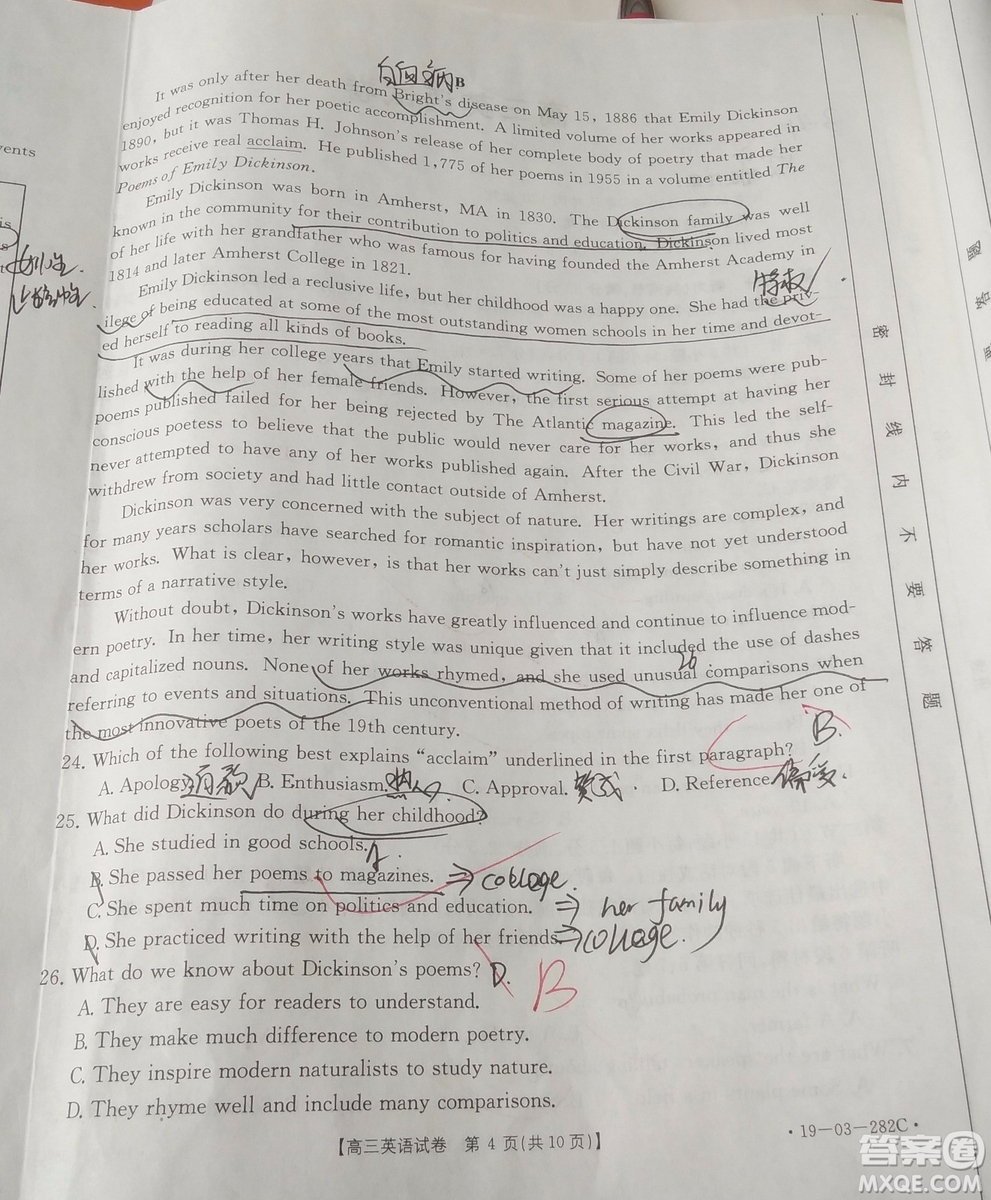 B
It was only after her death from Bright's disease on May 15, 1886 that Emily Dickinson
enjoyed recognition for her poetic accomplishment. A limited volume of her works appeared in
1890, but it was Thomas H. Johnson's release of her complete body of poetry that made her
works receive real acclaim. He published 1,775 of her poems in 1955 in a volume entitled The
Poems of Emily Dickinson.
Emily Dickinson was born in Amherst, MA in 1830. The Dickinson family was well
known in the community for their contribution to politics and education. Dickinson lived most
of her life with her grandfather who was famous for having founded the Amherst Academy in
1814 and later Amherst College in 1821.
特权
Emily Dickinson led a reclusive life, but her childhood was a happy one. She had the priv-
ilege of being educated at some of the most outstanding women schools in her time and devot-
ed herself to reading all kinds of books.
It was during her college years that Emily started writing. Some of her poems were pub-
lished with the help of her female friends. However, the first serious attempt at having her
poems published failed for her being rejected by The Atlantic magazine. This led the self-
conscious poetess to believe that the public would never care for her works, and thus she
never attempted to have any of her works published again. After the Civil War, Dickinson
withdrew from society and had little contact outside of Amherst.
Dickinson was very concerned with the subject of nature. Her writings are complex, and
for many years scholars have searched for romantic inspiration, but have not yet understood
her works. What is clear, however, is that her works can't just simply describe something in
terms of a narrative style.
Without doubt, Dickinson's works have greatly influenced and continue to influence mod-
ern poetry. In her time, her writing style was unique given that it included the use of dashes
and capitalized nouns. None of her works rhymed, and she used unusual comparisons when
26
referring to events and situations. This unconventional method of writing has made her one of
the most innovative poets of the 19th century.
24. Which of the following best explains "acclaim" underlined in the first paragraph? B.
A. Apology 道歉 B. Enthusiasm. 热心 C. Approval. 赞成 D. Reference
25. What did Dickinson do during her childhood?
A. She studied in good schools. A.
B. She passed her poems to magazines. ⇒ college.
C. She spent much time on politics and education. ⇒ her family
D. She practiced writing with the help of her friends. ⇒ college.
26. What do we know about Dickinson's poems? D. B
A. They are easy for readers to understand.
B. They make much difference to modern poetry.
C. They inspire modern naturalists to study nature.
D. They rhyme well and include many comparisons.
【高三英语试卷 第 4 页(共 10 页)】
·19-03-282C·
vents
密 封 线 内 不 要 答 题
答案圈
MXQE.COM